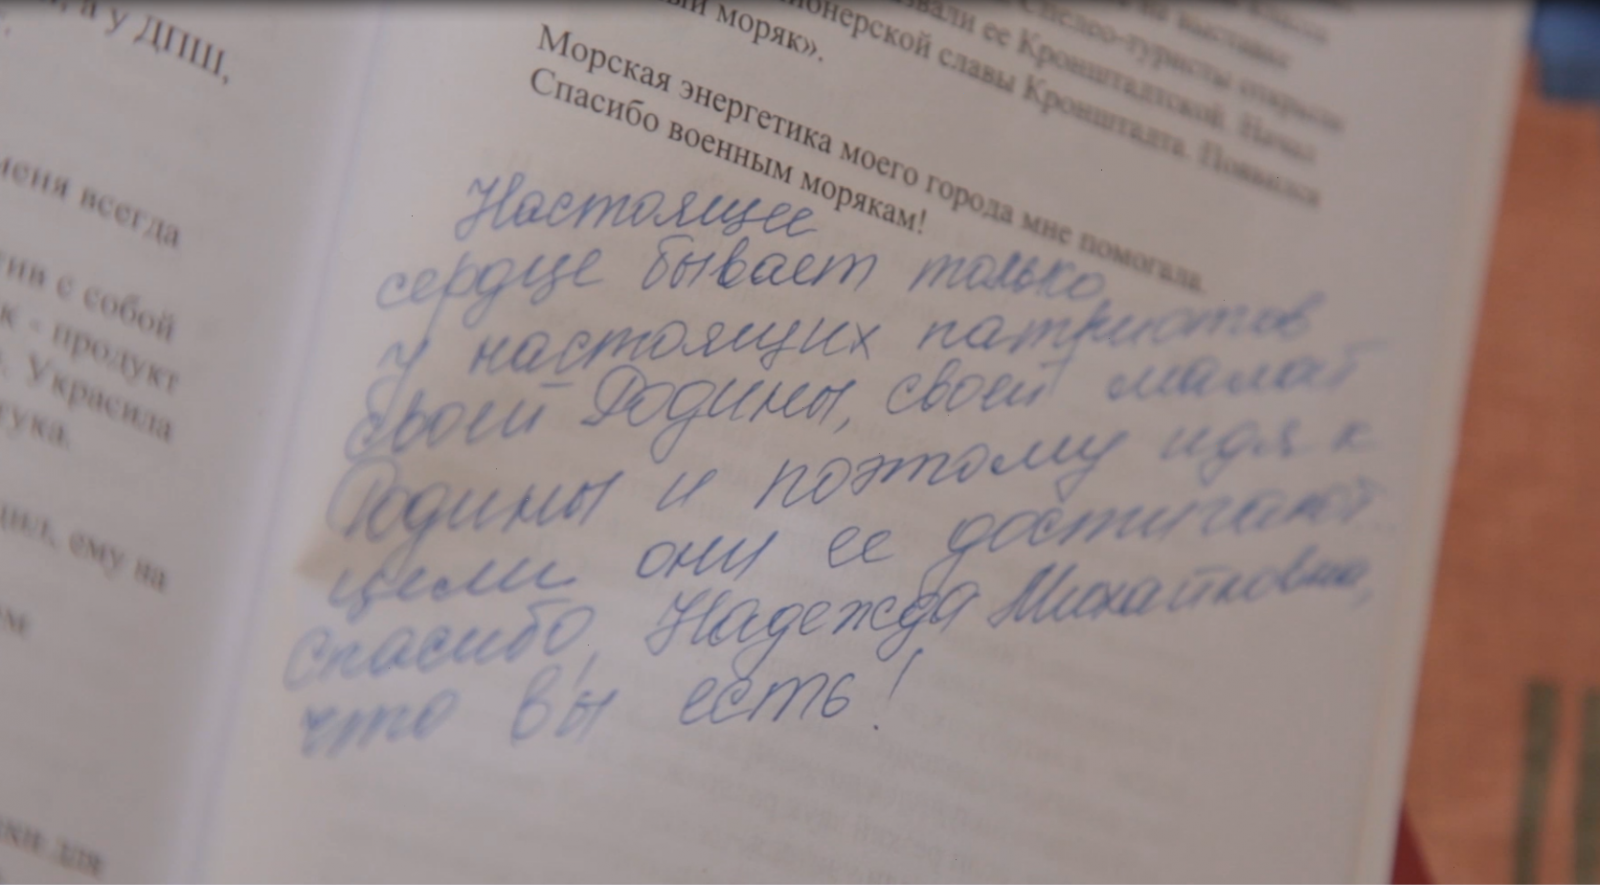 , а у ДПШ,
меня всегда
тив с собой
к - продукт
. Украсила
тука.
ему на
для
звали ее Кронштадтской. Начал
пионерской славы Кронштадта. Появился
ый моряк».
Морская энергетика моего города мне помогала.
Спасибо военным морякам!
Настоящее
сердце бывает только
у настоящих патриотов
своей Родины, своей малой
Родины и поэтому идя к
цели они ее достигают
Спасибо, Надежда Михайловна,
что вы есть!